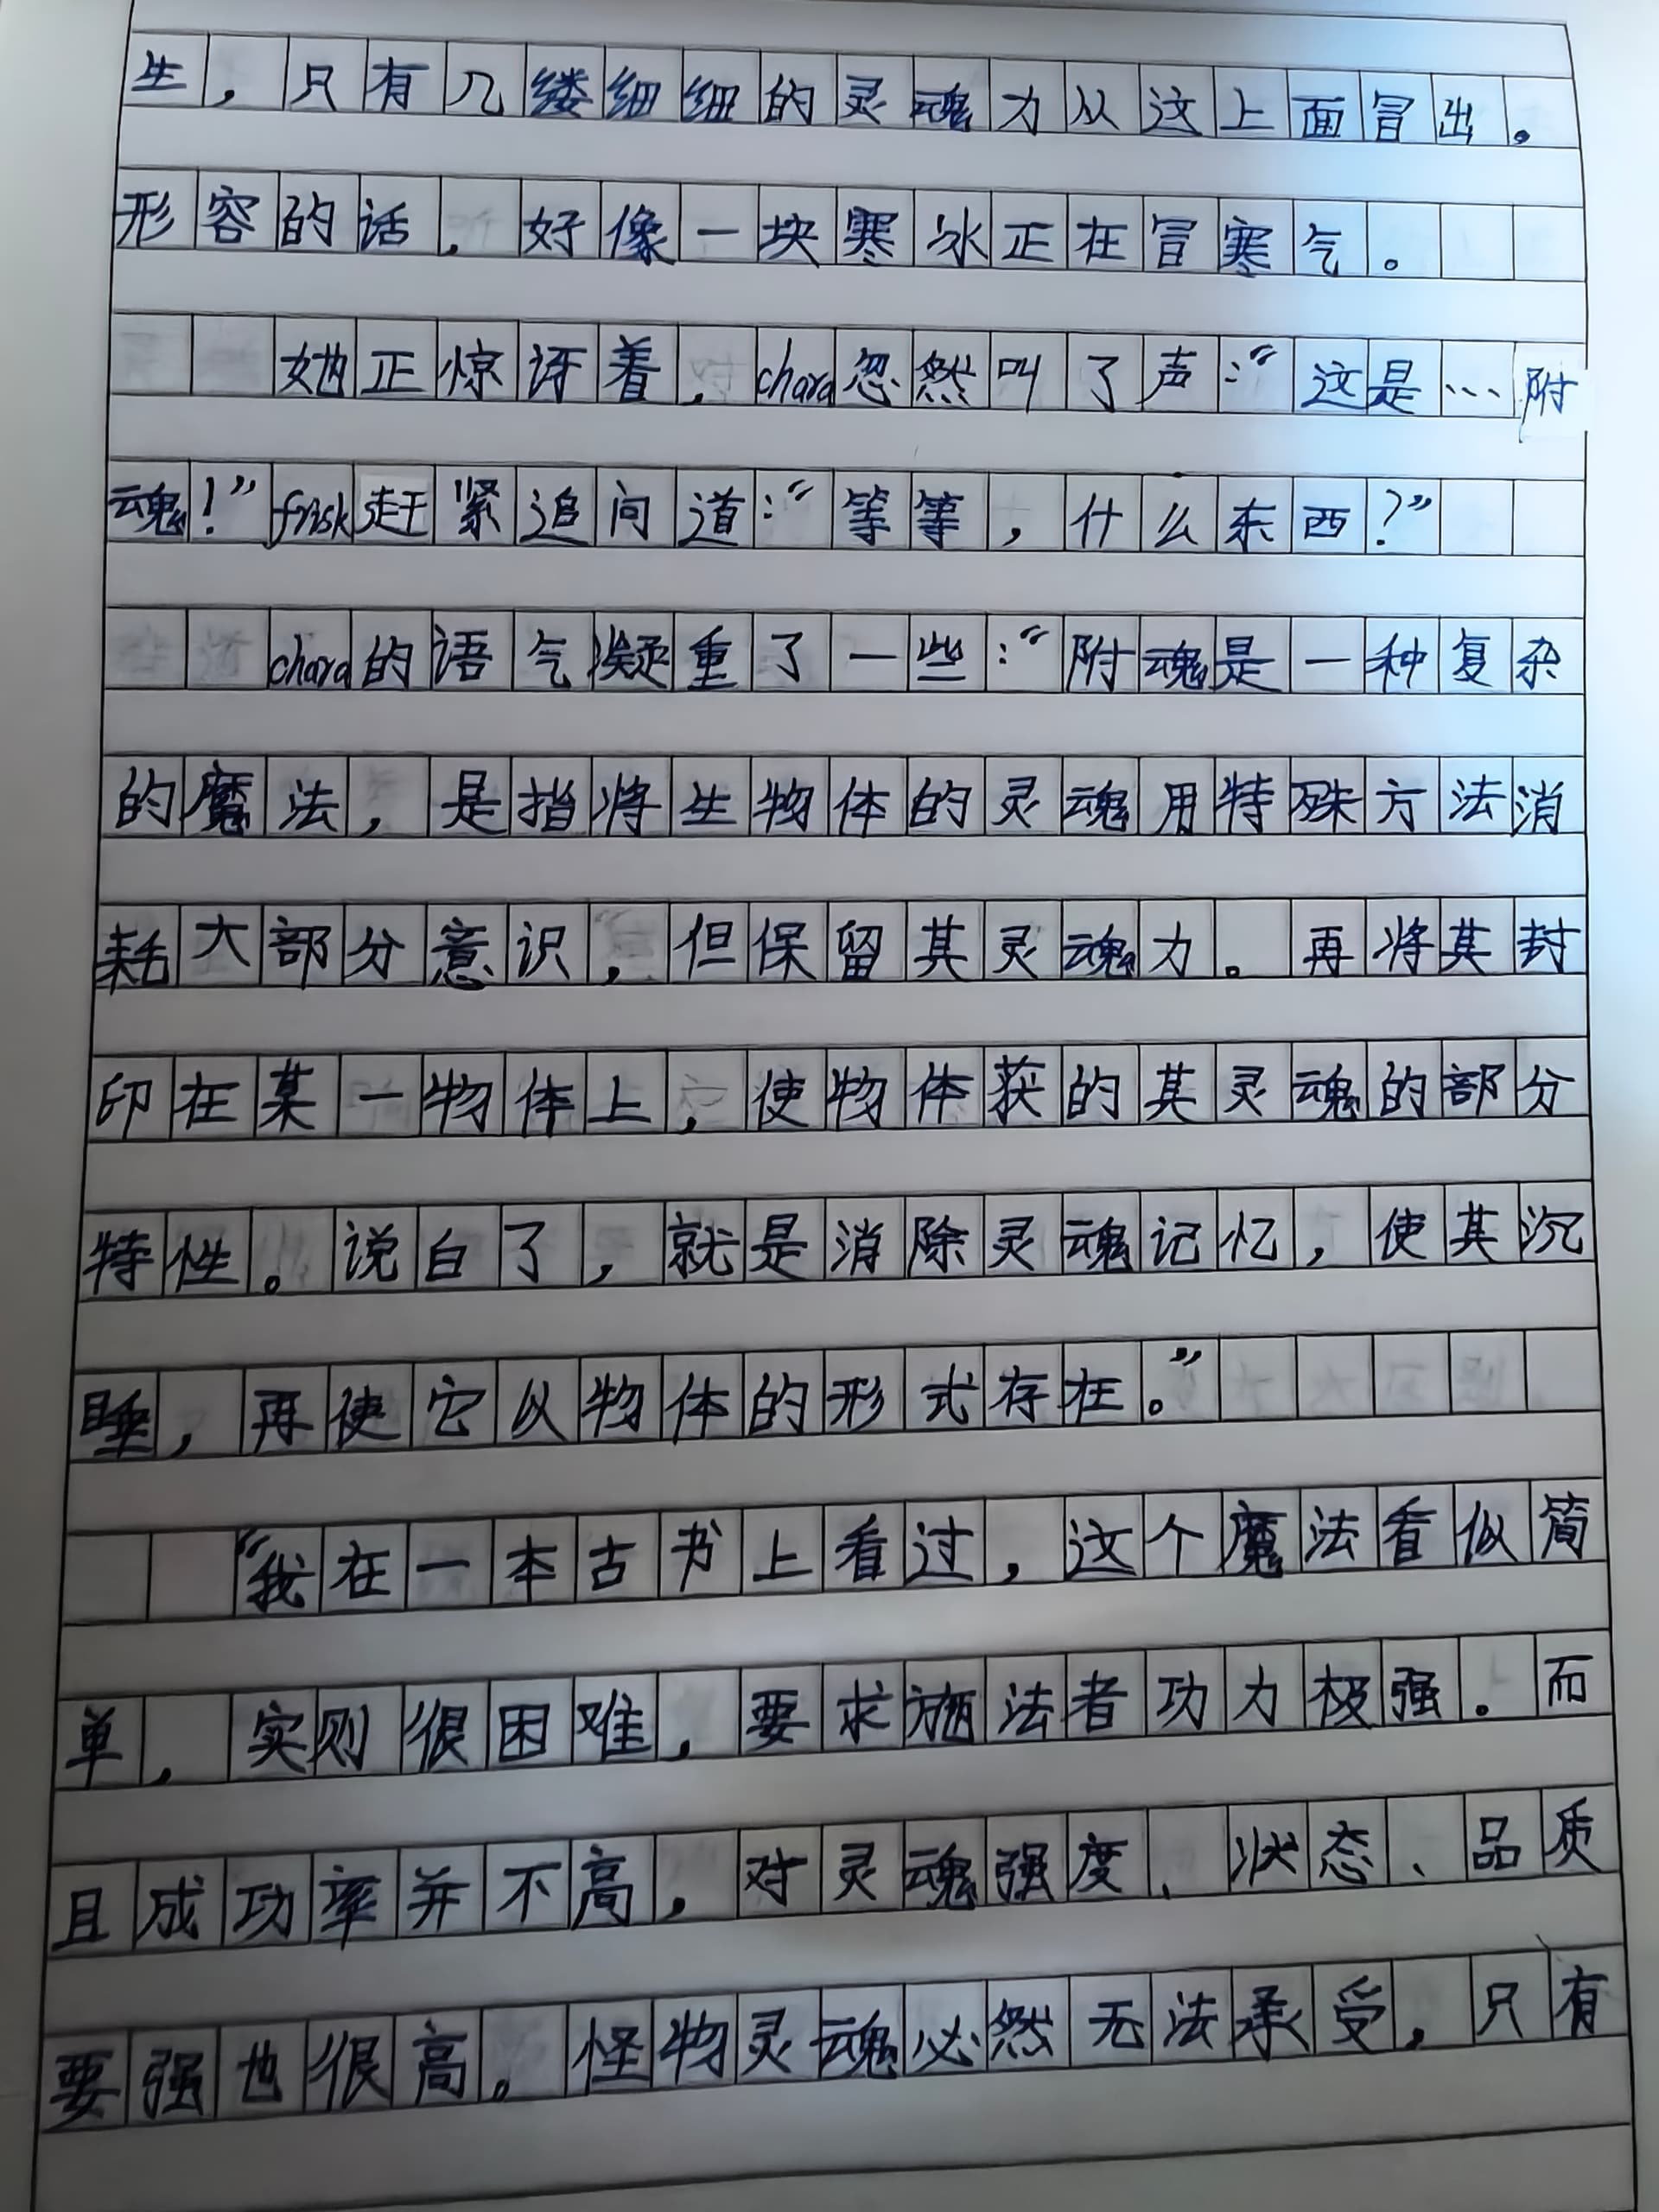 生，只有几缕细细的灵魂力从这上面冒出。
形容的话，好像一块寒冰正在冒寒气。
她正惊讶着，chara忽然叫了声：“这是…附
魂！”frisk赶紧追问道：“等等，什么东西？”
chara的语气凝重了一些：“附魂是一种复杂
的魔法，是指将生物体的灵魂用特殊方法消
耗大部分意识，但保留其灵魂力。再将其封
印在某一物体上，使物体获的其灵魂的部分
特性。说白了，就是消除灵魂记忆，使其沉
睡，再使它以物体的形式存在。”
“我在一本古书上看过，这个魔法看似简
单，实则很困难，要求施法者功力极强。而
且成功率并不高，对灵魂强度、状态、品质
要强也很高。怪物灵魂必然无法承受，只有